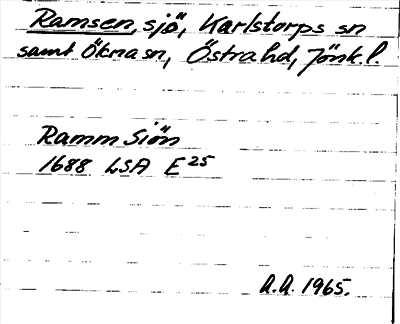 Ramsen, sjö, Karlstorps sn
samt Ökna sn, Östra hd, Jönk.l.
Ramm Siön
1688 LSA E25
A.A. 1965.